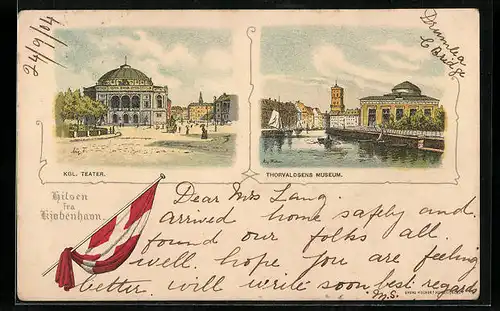 24/9/04
Drumlea
C Bridge
KGL. TEATER.
THORVALDSENS MUSEUM.
Hilsen
fra
Kjøbenhavn.
Dear Mrs Lang.
arrived home safely and
found our folks all
well. hope you are feeling
better. will write soon best regards
M.S.